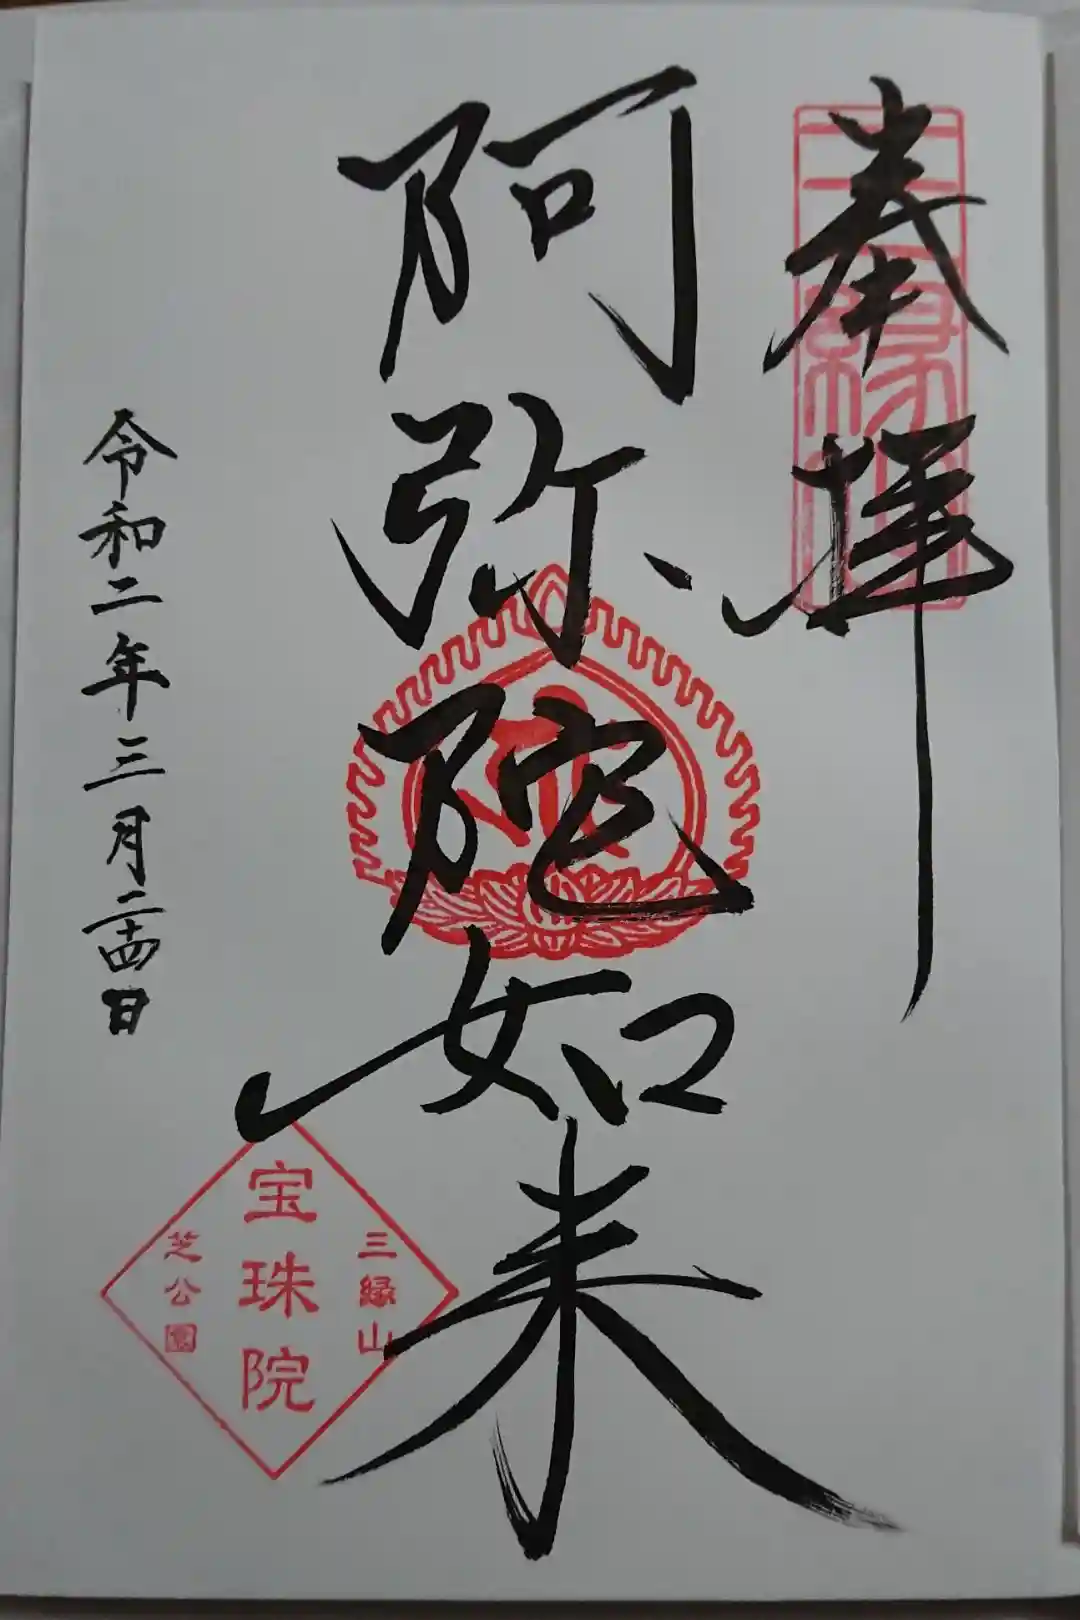 奉拝
三縁山
阿弥陀如来
令和二年三月二十四日
三縁山
宝珠院
芝公園